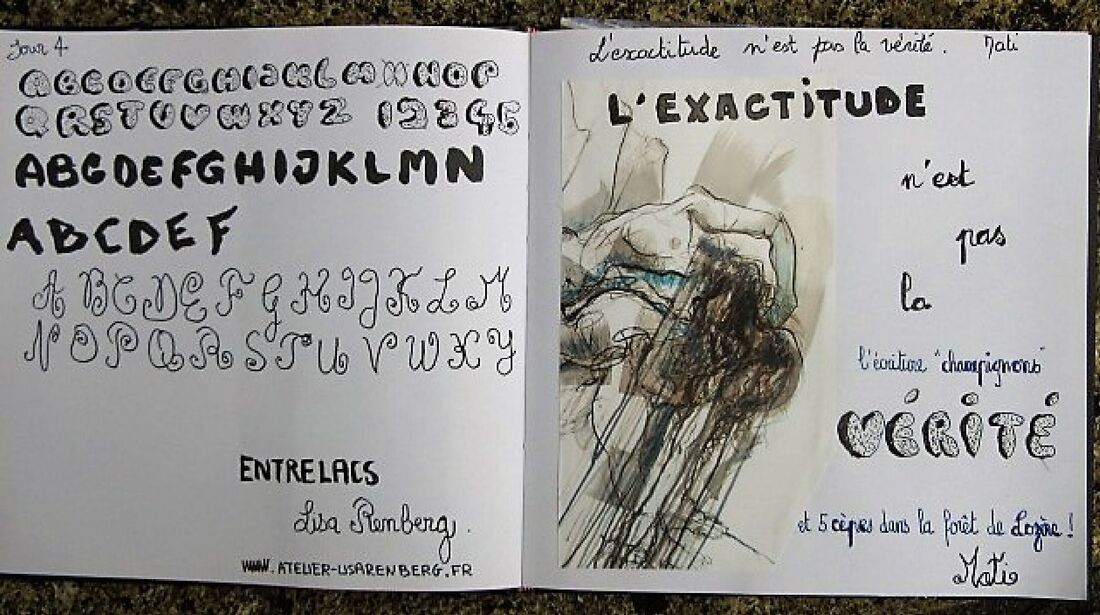 Jour 4
ABCDEFGHIJKLMNOP
QRSTUVWXYZ 12345
ABCDEFGHIJKLMN
ABCDEF
ABCDEFGHIJKLM
NOPQRSTUVWXY
ENTRELACS
Lisa Remberg.
WWW.ATELIER-LISARENBERG.FR
L'exactitude n'est pas la vérité. Mati
L'EXACTITUDE
n'est
pas
la
l'écriture "champignons"
VÉRITÉ
et 5 cèpes dans la forêt de Lozère !
Mati